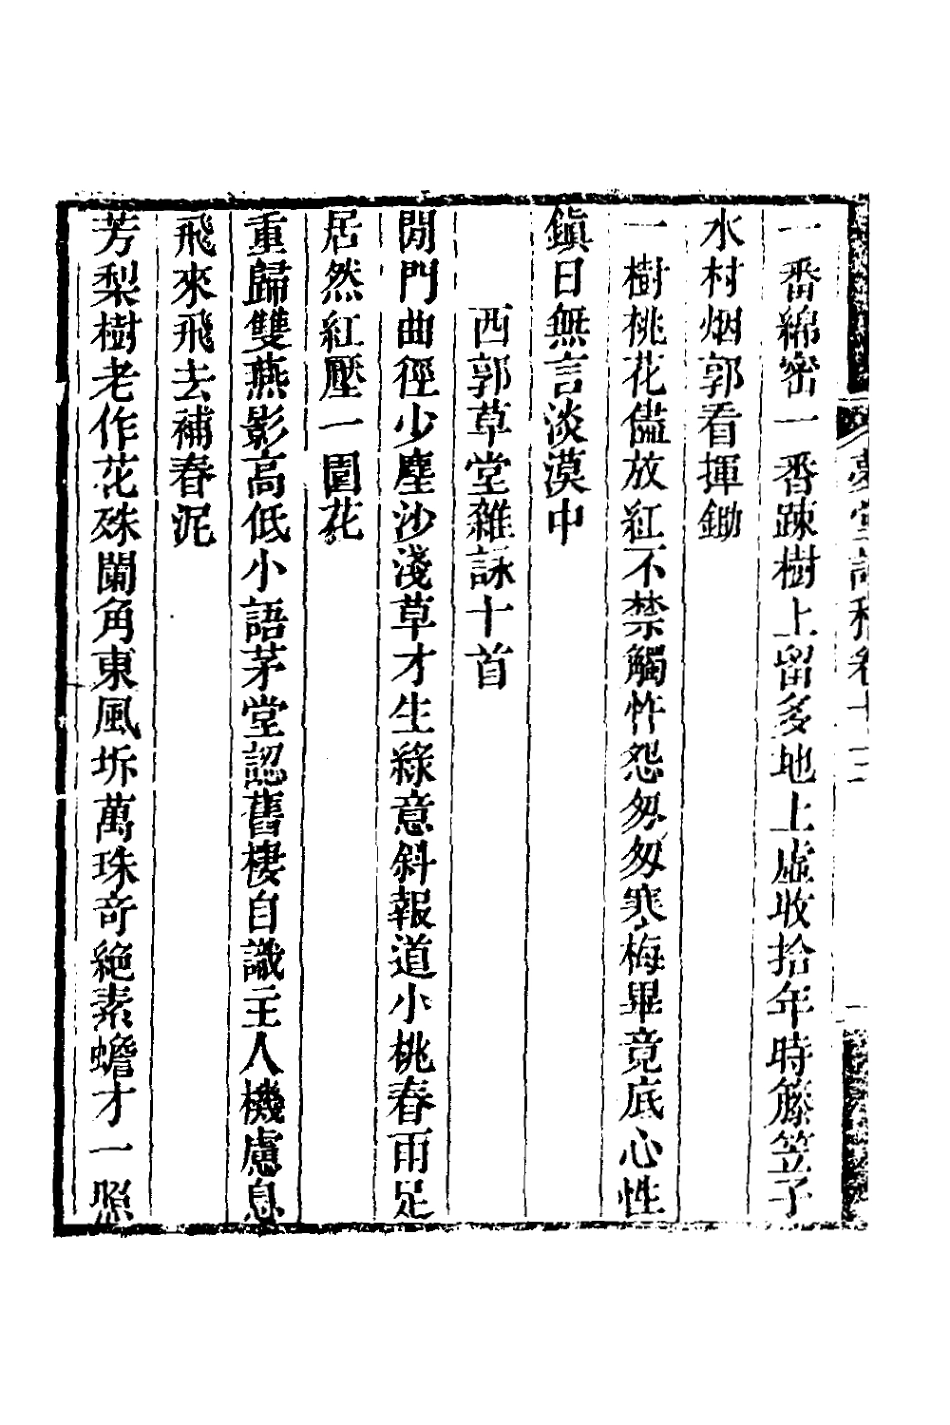 夢堂詩稿卷十二
一番綿密一番踈樹上留多地上虛收拾年時簝笠子
水村烟郭看揮鋤
一樹桃花儘放紅不禁觸忤怨匆匆寒梅畢竟底心性
鎭日無言淡漠中
西郭草堂雜詠十首
閒門曲徑少塵沙淺草才生綠意斜報道小桃春雨足
居然紅壓一園花
重歸雙燕影高低小語茅堂認舊棲自識主人機慮息
飛來飛去補春泥
芳梨樹老作花殊闌角東風坼萬珠奇絶素蟾才一照